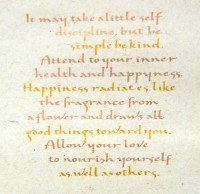 It may take a little self
discipline, but be
simple be kind.
Attend to your inner
health and happyness.
Happiness radiates like
the fragrance from
a flower and draws all
good things toward you.
Allow your love
to nourish yourself
as well as others.